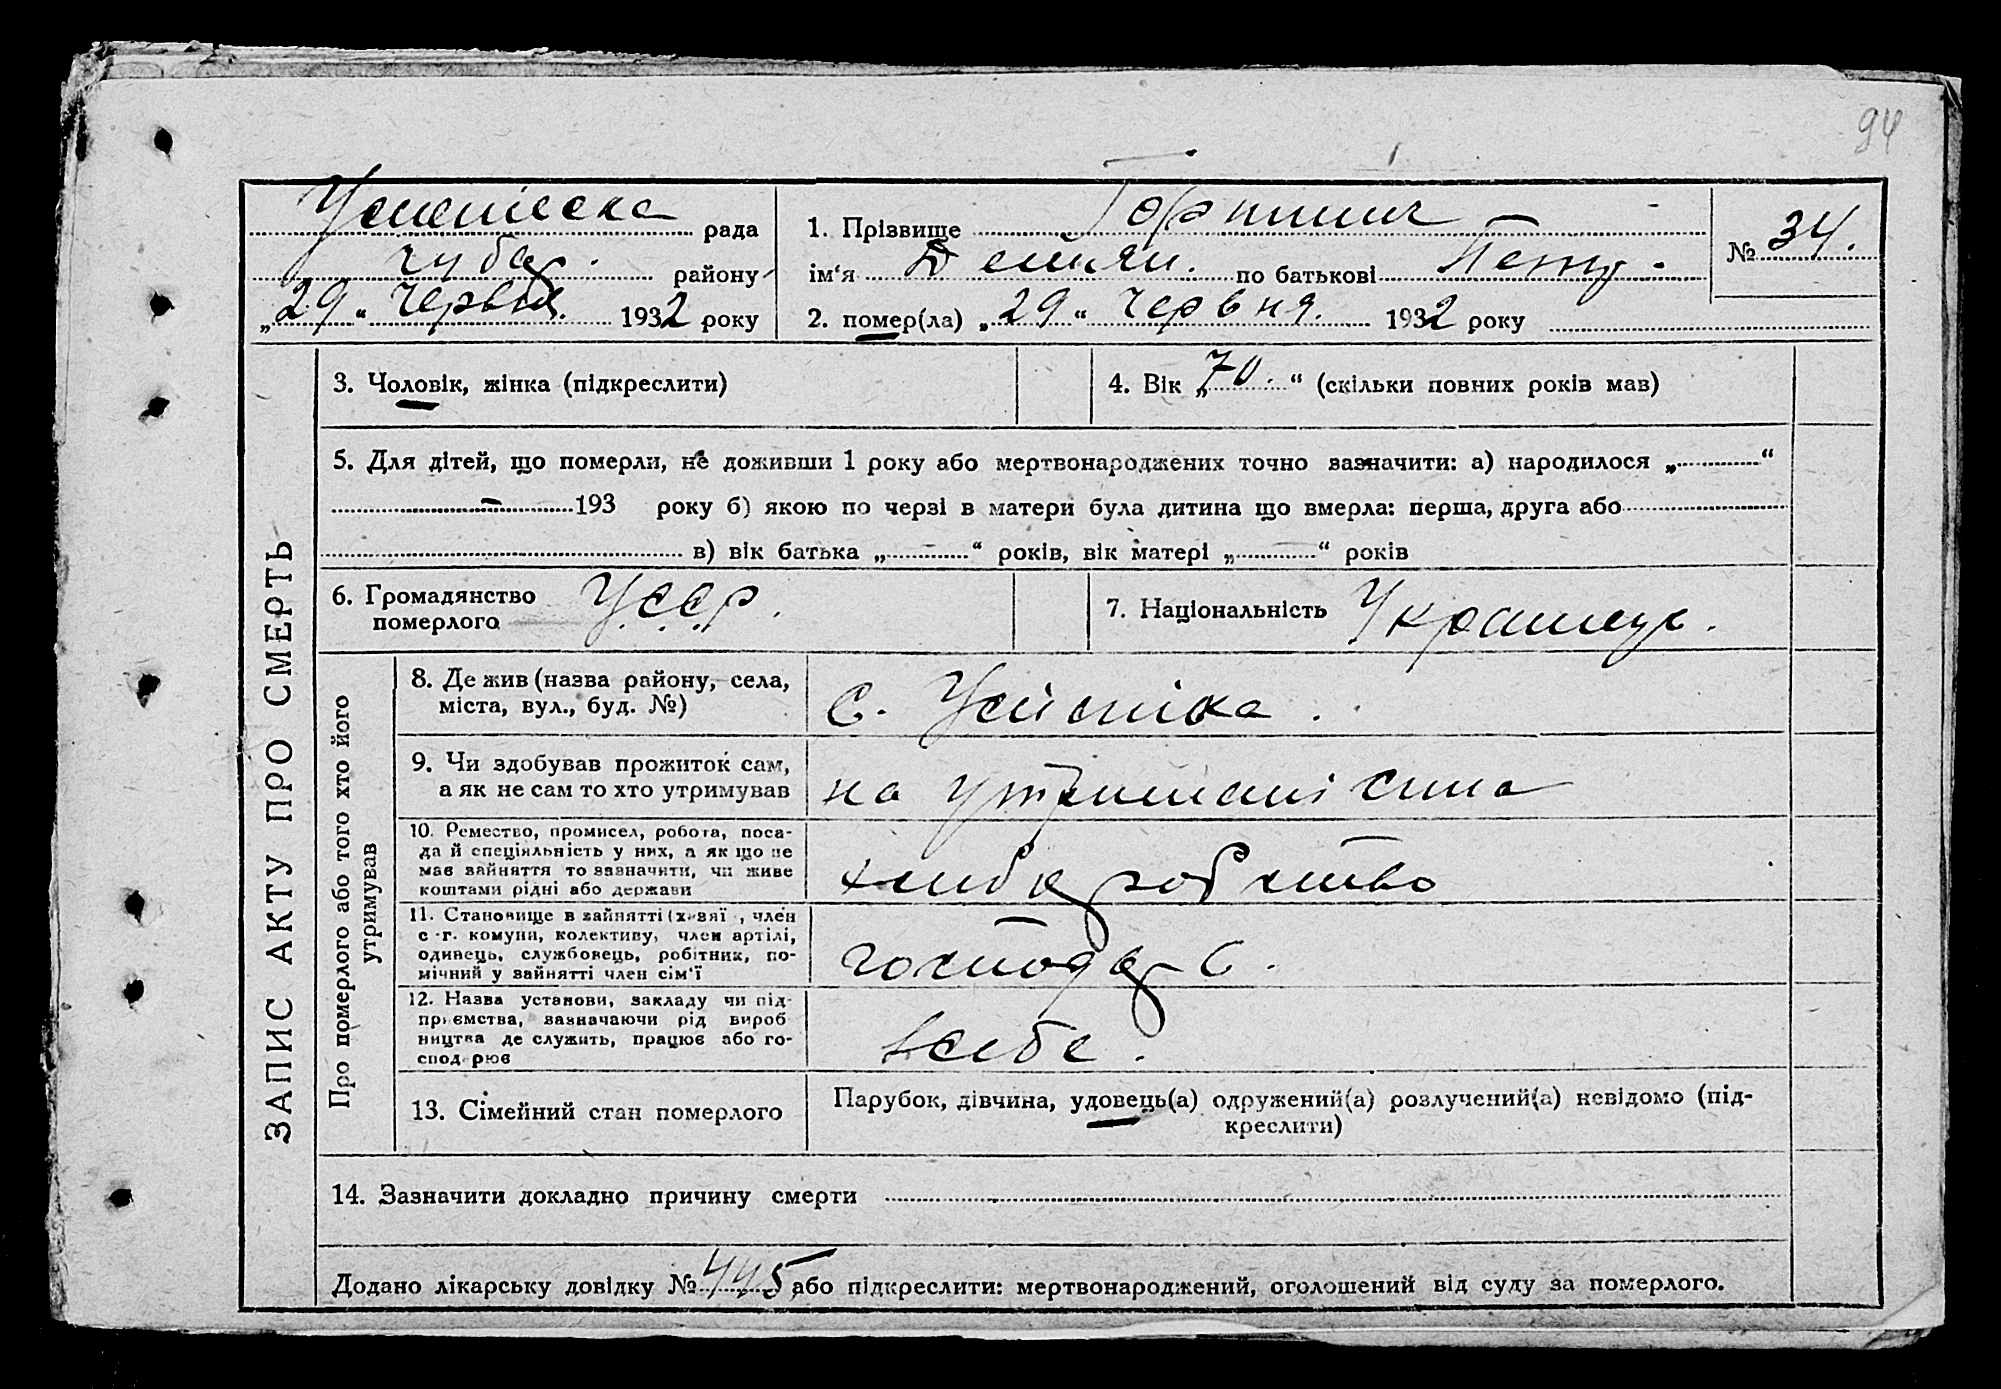 94
Успенівска рада
Чубар. району
„29“ червня. 1932 року
1. Прізвище
ім‘я Демʼян. по батькові Петр.
№ 34.
2. помер(ла) „29“ червня. 1932 року
ЗАПИС АКТУ ПРО СМЕРТЬ
3. Чоловік, жінка (підкреслити)
4. Вік „70.“ (скільки повних років мав)
5. Для дітей, що померли, не доживши 1 року або мертвонароджених точно зазначити: а) народилося „ “
- 193 року б) якою по черзі в матери була дитина що вмерла: перша, друга або
в) вік батька „ “ років, вік матері „ “ років
6. Громадянство
померлого УССР.
7. Національність Украинец.
Про померлого або того хто його
утримував
8. Де жив (назва району, села,
міста, вул., буд. №)
с.
9. Чи здобував прожиток сам,
а як не сам то хто утримував
на утриманні сина
10. Ремество, промисел, робота, поса-
да й спеціяльність у них, а як що не
має зайняття то зазначити, чи живе
коштами рідні або держави
хлиборобство
11. Становище в зайнятті (хазяї , член
с.-г. комуни, колективу, член артілі,
одинець, службовець, робітник, по-
мічний у зайнятті член сім'ї
господар С.
12. Назва установи, закладу чи під-
приємства, зазначаючи рід вироб
ництва де служить, працює або го-
сподарює
в себе.
13. Сімейний стан померлого
Парубок, дівчина, удовець(а) одружений(а) розлучений(а) невідомо (під-
креслити)
14. Зазначити докладно причину смерти
Додано лікарську довідку № 445 або підкреслити: мертвонароджений, оголошений від суду за померлого.